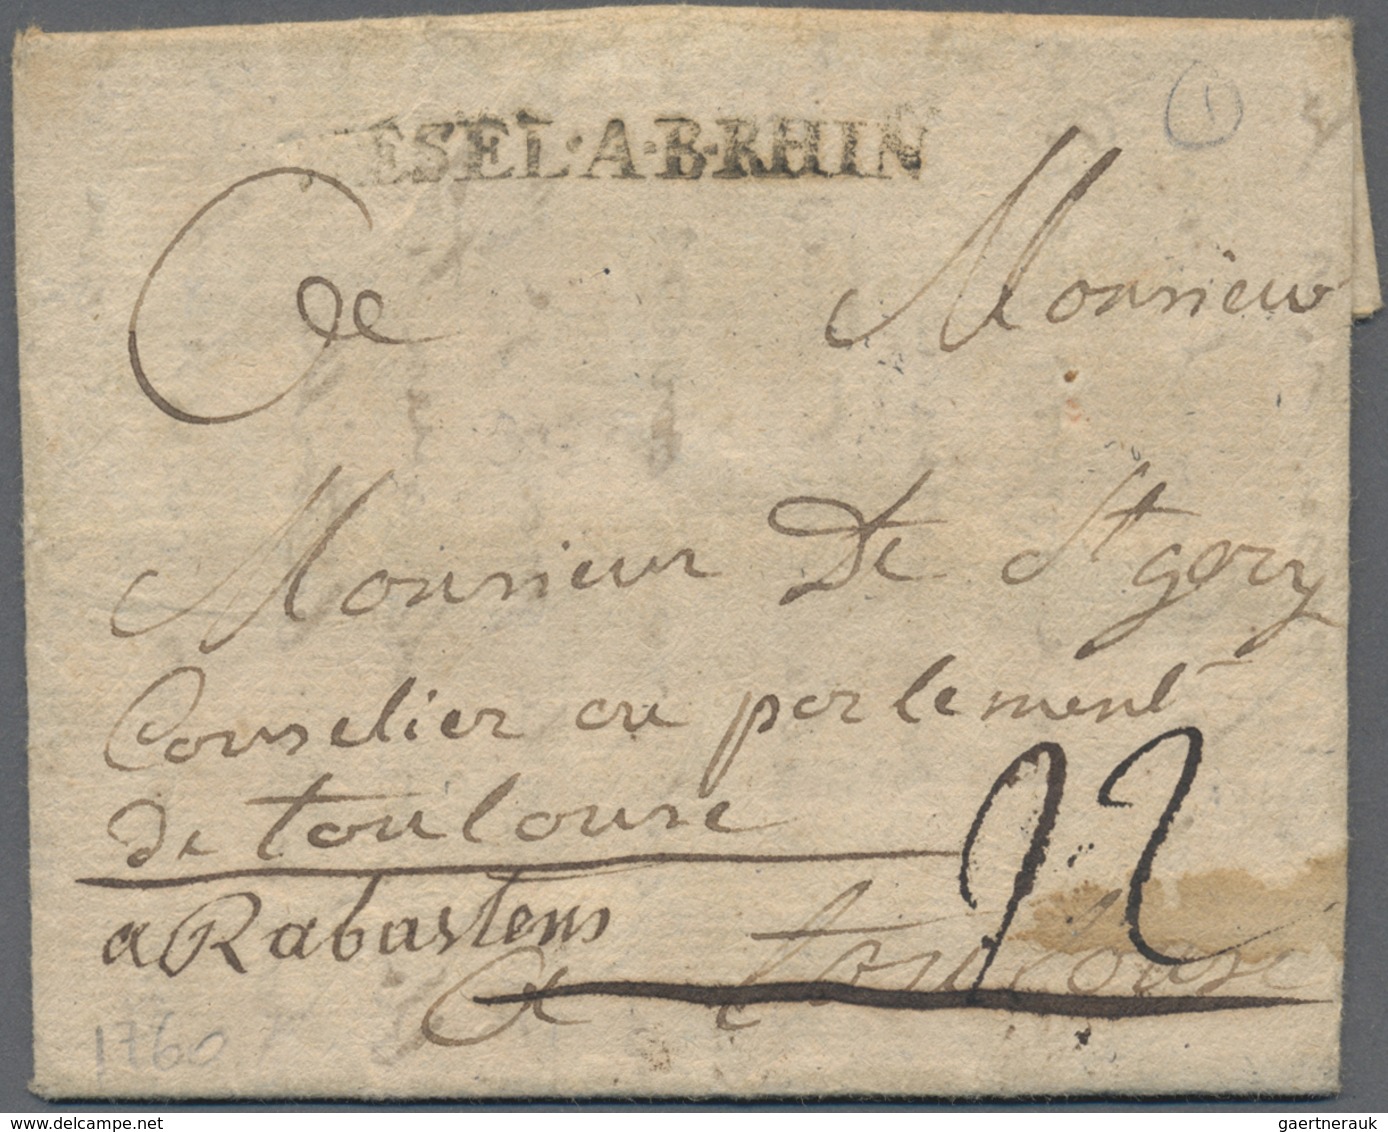 ESEL·A·B·RHIN
1
A Monsieur
Monsieur De St gery
Conselier au parlement
de toulouse
22
a Rabastens
A toulouse
1760
www.delcampe.net
gaertnerauk